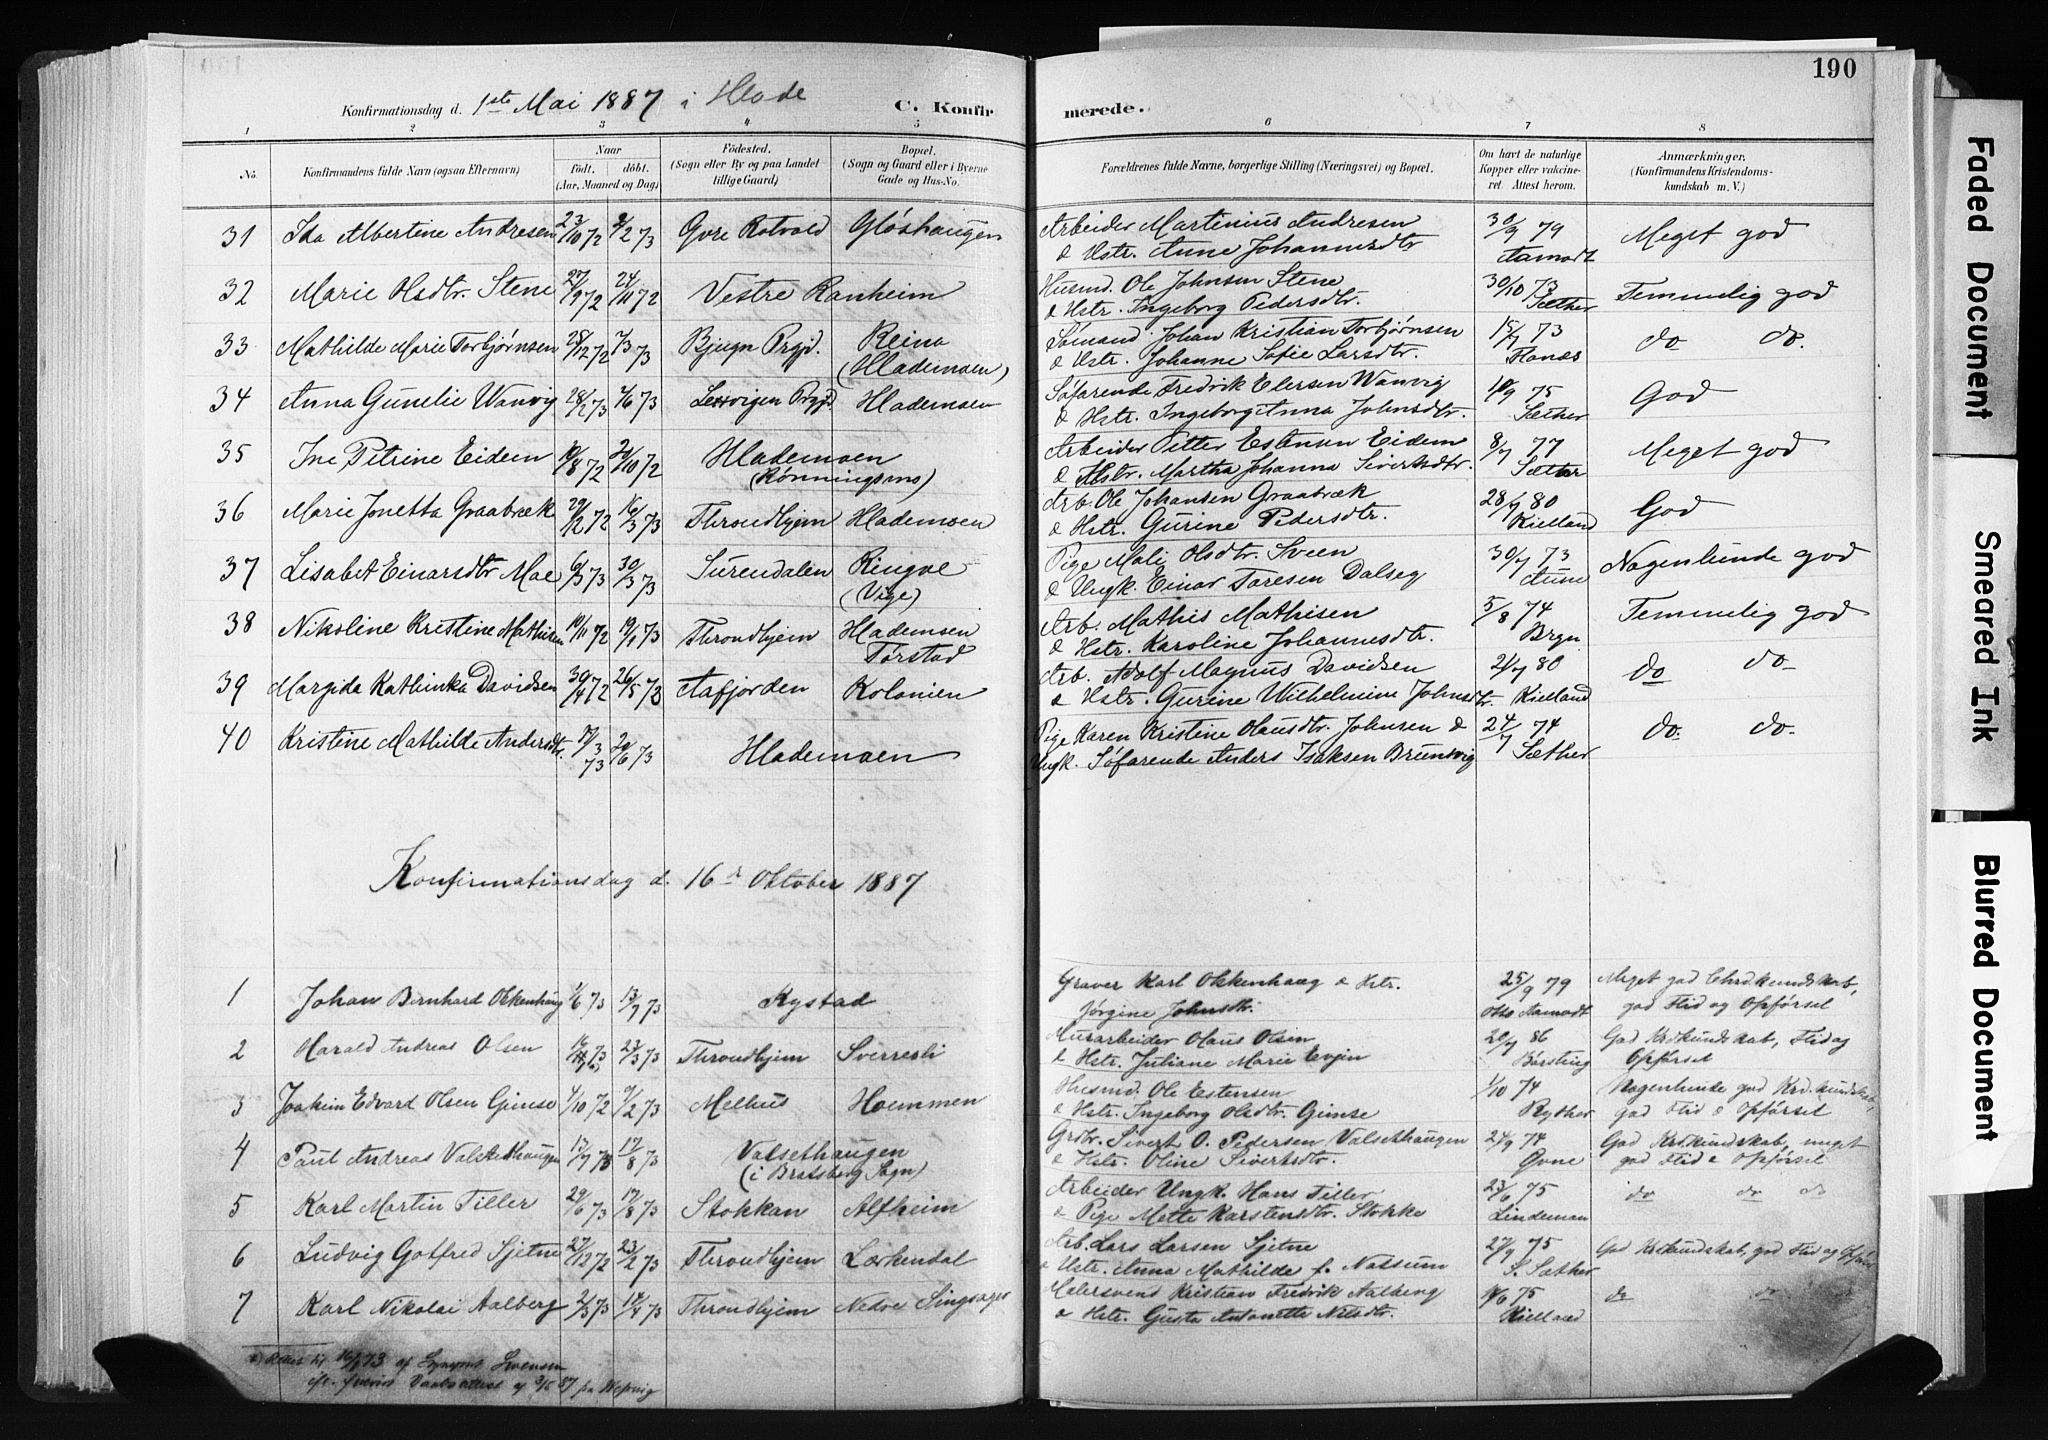 190
Konfirmationsdag d. 1ste Mai 1887 i Hlade C. Konfirmerede.
1 2 3 4 5 6 7 8
No. Konfirmandens fulde Navn (ogsaa Efternavn) Naar født. døbt. (Aar, Maaned og Dag) Fødested. (Sogn eller By og paa Landet tillige Gaard) Bopæl. (Sogn og Gaard eller i Byerne Gade og Hus-No. Forældrenes fulde Navne, borgerlige Stilling (Næringsvei) og Bopæl. Om havt de naturlige Kopper eller vakcineret. Attest herom. Anmærkninger. (Konfirmandens Kristendomskundskab m. V.)
31 Ida Albertine Andresen 23/10 72 9/2 73 Øvre Rotvold Gløshaugen Arbeider Martinius Andresen & Hstr. Anne Johannesdtr 30/9 79 Aamodt Meget god
32 Marie Olsdtr. Stene 27/9 72 24/11 72 Vestre Ranheim Husmd. Ole Johnsen Stene & Hstr. Ingeborg Pedersdtr. 30/10 73 Sæther Temmelig god
33 Mathilde Marie Torbjørnsen 28/12 72 7/3 73 Bjugn Prgjd. Reina (Hlademoen) Sømand Johan Kristian Torbjørnsen & Hstr. Johanne Sofie Larsdtr. 15/7 73 Hanes do do.
34 Anna Gunelie Wanvig 28/2 73 2/6 73 Lexvigen Prgjd Hlademoen Søfarende Fredrik Elersen Wanvig & Hstr. Ingeborg Anna Johnsdtr. 10/9 75 Sæther God
35 Ine Petrine Eidem 10/8 72 20/10 72 Hlademoen (Rønningsmo) Arbeider Petter Estensen Eidem & Hstr. Martha Johanna Sivertsdtr. 8/7 77 Sæther Meget god
36 Marie Jonetta Graabræk 29/12 72 16/3 73 Throndhjem Hlademoen Arb. Ole Johansen Graabræk & Hstr. Gurine Pedersdtr. 28/7 80 Kielland God
37 Lisabet Einarsdtr Moe 6/3 73 30/3 73 Surendalen Ringve (Vige) Pige Mali Olsdtr. Sveen & Ungk. Einar Toresen Dalseg 30/7 73 Aune Nogenlunde god
38 Nikoline Kristine Mathisen 10/11 72 19/1 73 Throndhjem Hlademoen Arb. Mathis Mathisen & Hstr. Karoline Johannesdtr. 5/8 74 Bryn Temmelig god
39 Margida Kathinka Davidsen 30/4 72 26/5 73 Aafjorden Tørstad Kolonien Arb. Adolf Magnus Davidsen & Hstr. Gurine Wilhelmine Johnsdtr. 21/7 80 Kielland do do
40 Kristine Mathilde Andersdtr. 7/3 73 20/6 73 Hlademoen Pige Karen Kristine Olausdtr. Johnsen & Ungk. Søfarende Anders Isaksen Brunvig 24/7 74 Sæther do. do.
Konfirmationsdag d. 16de Oktober 1887
1 Johan Bernhard Okkenhaug 1/6 73 13/7 73 Rystad Graver Karl Okkenhaug & Hstr. Jørgine Johnsdtr. 25/9 79 Otto Aamodt Meget god Chrdkundskab, god Flid og Opførsel
2 Harald Andreas Olsen 73 23/3 73 Throndhjem Sverresli Murarbeider Olaus Olsen & Hstr. Juliane Marie Evjen 20/7 86 Borsting God Krdkundskab, Flid og Opførsel
3 Joakim Edvard Olsen Gimse 4/10 72 9/2 73 Melhus Hoemmen Husmd. Ole Estensen & Hstr. Ingeborg Olsdtr. Gimse 1/10 74 Rydher Nogenlunde god Krd.kundskab, god Flid & Opførsel
4 Paul Andreas Valsethaugen 13/7 73 17/8 73 Valsethaugen (i Bratsberg Sogn) Grdbr. Sivert O. Pedersen Valsethaugen & Hstr. Oline Sivertsdtr. 24/9 74 Øvne God Krdkundskab, meget god Flid & Opførsel
5 Karl Martin Tiller 29/6 73 17/8 73 Stokkan Alfheim Arbeider Ungk. Hans Tiller & Pige Mette Karstensdtr. Stokke 23/6 75 Lindeman do do do
6 Ludvig Gotfred Sjetne 27/12 72 23/2 73 Throndhjem Lerkendal Arb. Lars Larsen Sjetne & Hstr. Anna Mathilde f. Nassum 27/9 75 S. Sæther God Krdkundskab, god Flid og Opførsel
7 Karl Nikolai Aalberg 2/3 73 14/4 73 Throndhjem Nedre Singsager Malersvend Kristian Fredrik Aalberg & Hstr. Gusta Antonette Nilsdtr. 18/6 75 Kielland do do
x) Rettet til 16/1 73 af Sogneprest Svensen
Faded Document
Smeared Ink
Blurred Document